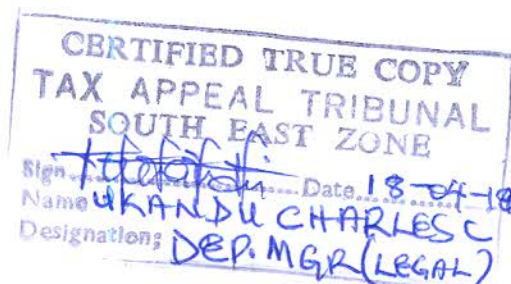 CERTIFIED TRUE COPY
TAX APPEAL TRIBUNAL
SOUTH EAST ZONE
Sign.................Date 18-04-18
Name UKANDU CHARLES C
Designation; DEP. MGR (LEGAL)